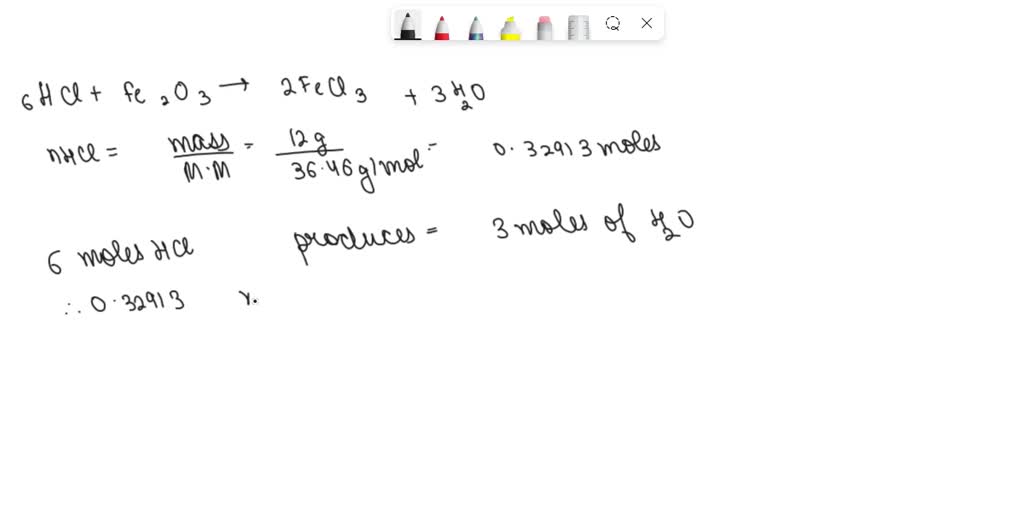 6HCl + Fe2O3 → 2FeCl3 + 3H2O
nHCl = mass/M.M = 12g/36.46g/mol = 0.32913 moles
6 moles HCl produces = 3 moles of H2O
∴ 0.32913